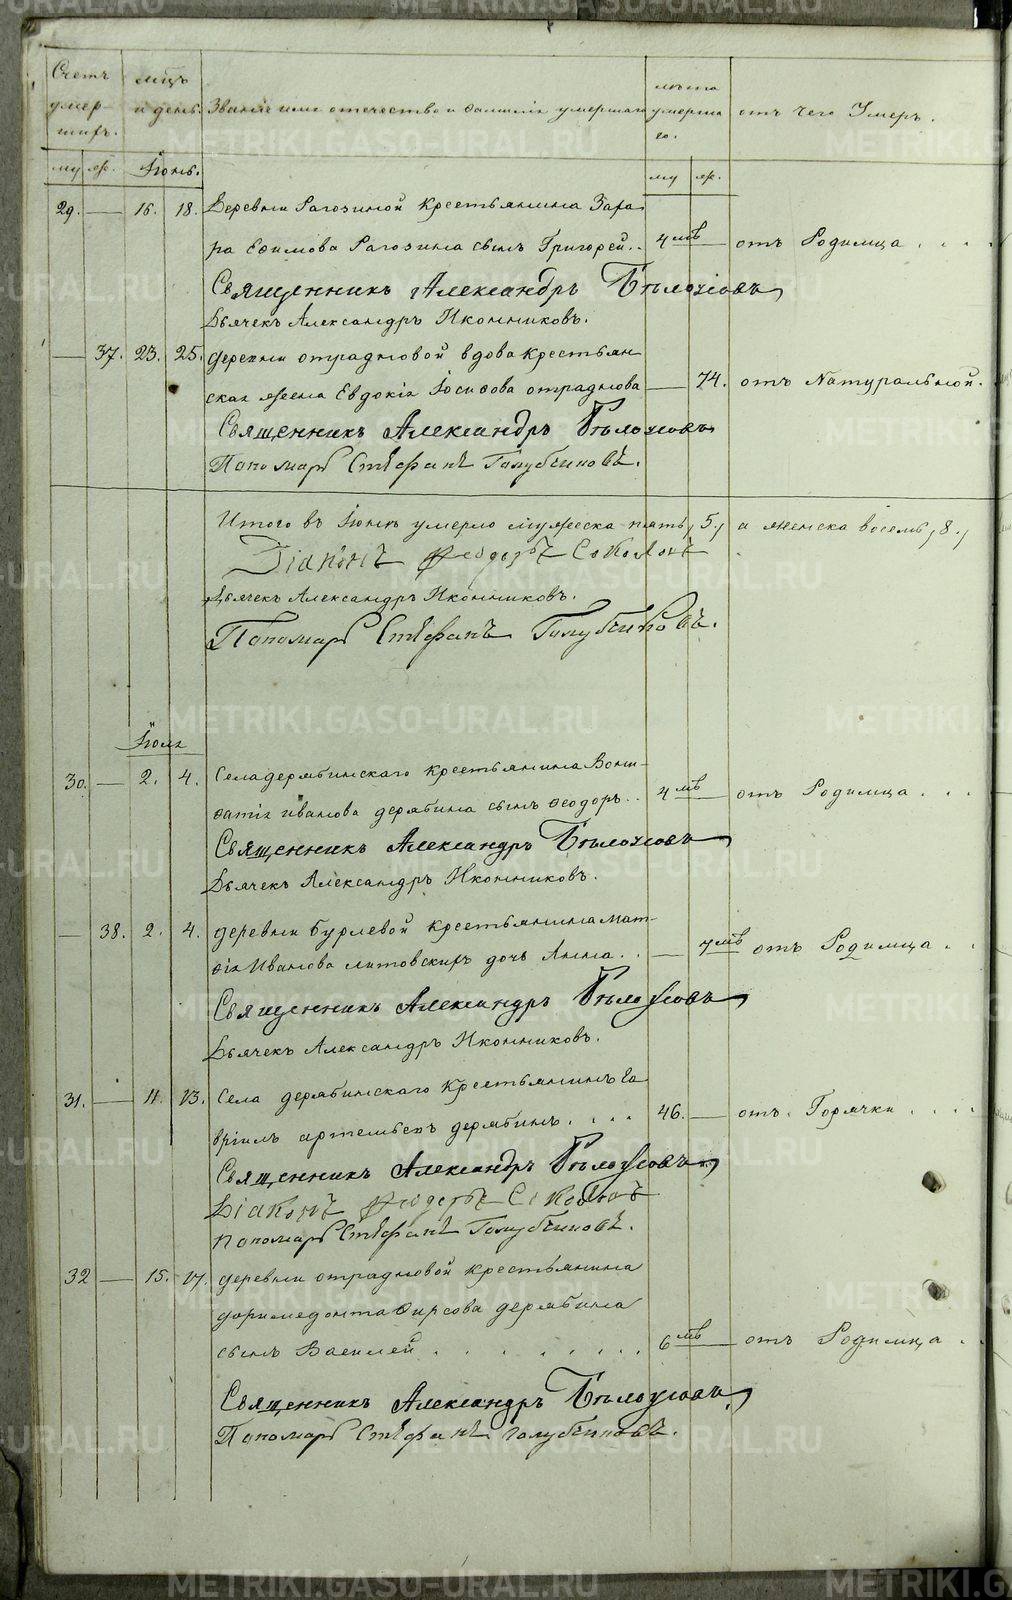 Счетъ умер- шихъ.
мцъ и день.
Званіе имя отечество и фамилія умершаго
лѣта умерша го.
отъ чего Умеръ.
му. же. Іюнь. му же.
29. — 16. 18. Деревни Рагозиной крестьянина Заха-
ра Ефимова Рагозина сынъ Григорей.. 4 мѣ — отъ Родимца . . . .
Священникъ Александръ Бѣлоусовъ
Дьячекъ Александръ Иконниковъ.
— 37. 23. 25. деревни отрадновой вдова крестьян-
ская жена Евдокія Іосифова отраднова — 74. отъ Натуральной.
Священникъ Александръ Бѣлоусовъ
Пономарь Стефанъ Голубчиковъ.
Итого въ Іюнѣ умерло мужеска пять, 5, а женска восемь, 8,
Діаконъ Феодоръ Соколовъ
Дьячекъ Александръ Иконниковъ.
Пономарь Стефанъ Голубчиковъ.
Іюля
30. — 2. 4. Села дерябинскаго крестьянина Вони-
фатія иванова дерябина сынъ Феодоръ.. 4 мѣ — отъ Родимца . . .
Священникъ Александръ Бѣлоусовъ
Дьячекъ Александръ Иконниковъ.
— 38. 2. 4. деревни Бурлевой крестьянина Мат-
фія Иванова литовскихъ дочь Анна . . — 7 мѣ отъ Родимца . .
Священникъ Александръ Бѣлоусовъ
Дьячекъ Александръ Иконниковъ.
31. — 11. 13. Села дерябинскаго крестьянинъ Га
вріилъ артемьевъ дерябинъ. . . . 46. — отъ. Горячки . . . .
Священникъ Александръ Бѣлоусовъ
Діаконъ Феодоръ Соколовъ
Пономарь Стефанъ Голубчиковъ.
32 — 15. 17. деревни отрадновой крестьянина
доримедонта Фирсова дерябина
сынъ Василей . . . . . . . . 6 мѣ — отъ Родимца . .
Священникъ Александръ Бѣлоусовъ
Пономарь Стефанъ Голубчиковъ.
METRIKI.GASO-URAL.RU